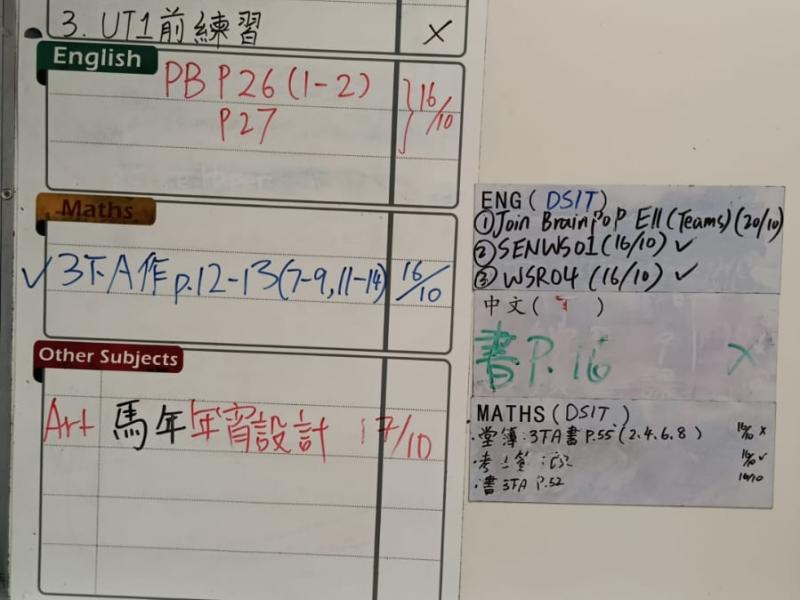 3. UT1前練習 ×
English
PB P26(1-2)
P27 } 16/10
Maths
✓ 3下A作 p.12-13(7-9,11-14) 16/10
Other Subjects
Art 馬年年宵設計 17/10
ENG( DSIT )
①Join BrainpoP Ell (Teams) (20/10)
②SENWS01 (16/10) ✓
③WSR04 (16/10) ✓
中文( )
書P. 16 ×
MATHS(DSIT )
·堂簿:3TA書 P.55(2.4.6.8) 16/10 ×
16/10 ✓
·書 3TA P.52 16/10